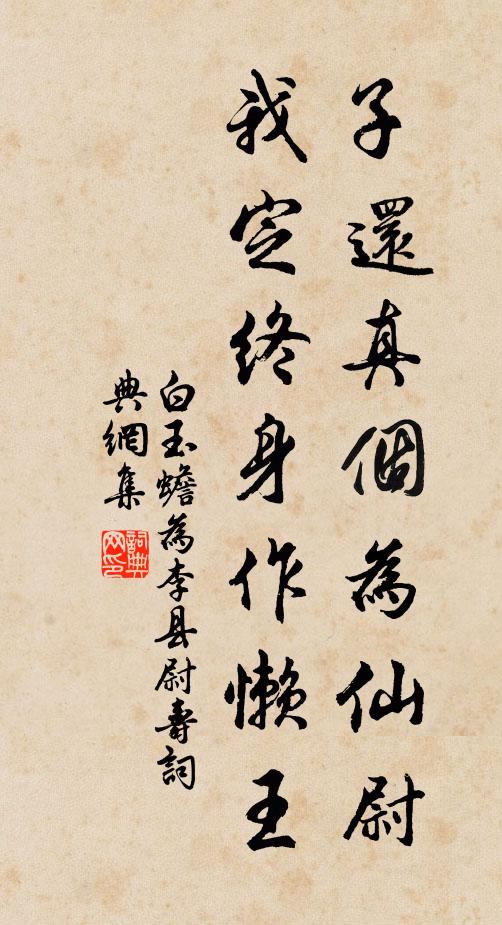 子還真個為仙尉
我定終身作懶王
白玉蟾為李县尉壽詞
典網集
詞典網印